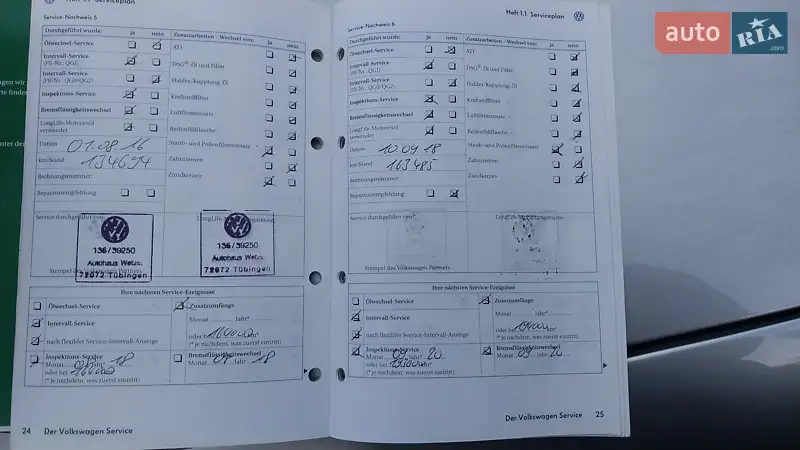 Heft 1.1 Serviceplan
Service-Nachweis 5
Durchgeführt wurde: ja nein
Zusatzarbeiten - Wechsel von: ja nein
Ölwechsel-Service
ATF
Intervall-Service
(PR-Nr.: QG1)
DSG Öl und Filter
Intervall-Service
(PR-Nr.: QG0/QG2)
Haldex-Kupplung-Öl
Inspektions-Service
Kraftstofffilter
Bremsflüssigkeitswechsel
Luftfiltereinsatz
LongLife-Motorenöl
verwendet
Reifenfüllflasche
Datum 01.08.16
Staub- und Pollenfiltereinsatz
km-Stand 134694
Zahnriemen
Rechnungsnummer:
Zündkerzen
Reparaturempfehlung
Service durchgeführt von:
136/39250
Autohaus
72072 Tübingen
136/39250
Autohaus
72072 Tübingen
Stempel des Volkswagen Partners
Ihre nächsten Service-Ereignisse
Ölwechsel-Service
Zusatzumfänge
Intervall-Service
Monat Jahr*
nach flexibler Service-Intervall-Anzeige
oder bei 164000 km*
(* je nachdem, was zuerst eintritt)
Inspektions-Service
Monat 08 Jahr 18
oder bei 164000
(* je nachdem, was zuerst eintritt)
Bremsflüssigkeitswechsel
Monat 08 Jahr 18
24 Der Volkswagen Service
Heft 1.1 Serviceplan
Service-Nachweis 6
Durchgeführt wurde: ja nein
Zusatzarbeiten - Wechsel von: ja nein
Ölwechsel-Service
ATF
Intervall-Service
(PR-Nr.: QG1)
DSG Öl und Filter
Intervall-Service
(PR-Nr.: QG0/QG2)
Haldex-Kupplung-Öl
Inspektions-Service
Kraftstofffilter
Bremsflüssigkeitswechsel
Luftfiltereinsatz
LongLife-Motorenöl
verwendet
Reifenfüllflasche
Datum 10.09.18
Staub- und Pollenfiltereinsatz
km-Stand 163485
Zahnriemen
Rechnungsnummer:
Zündkerzen
Reparaturempfehlung
Service durchgeführt von:
Stempel des Volkswagen Partners
Ihre nächsten Service-Ereignisse
Ölwechsel-Service
Zusatzumfänge
Intervall-Service
Monat Jahr*
nach flexibler Service-Intervall-Anzeige
oder bei km*
(* je nachdem, was zuerst eintritt)
Inspektions-Service
Monat 09 Jahr 20
oder bei
(* je nachdem, was zuerst eintritt)
Bremsflüssigkeitswechsel
Monat 09 Jahr 20
Der Volkswagen Service 25
auto RIA
.com